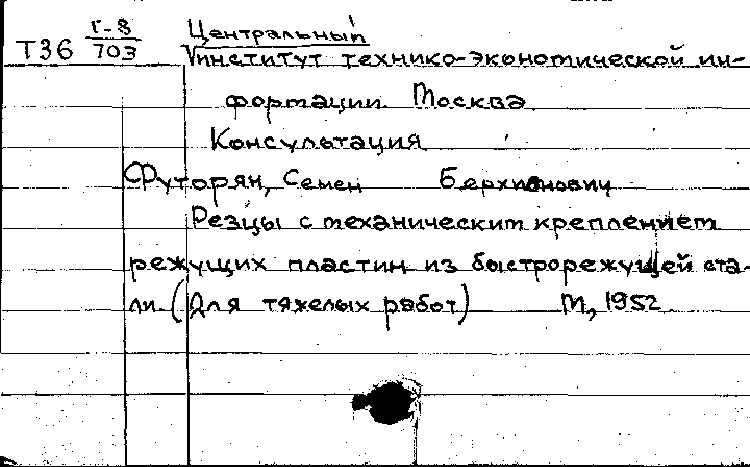 Г-8 Центральный
Т36 703 Институт технико-экономической ин-
формации. Москва
Консультация
Футорян, Семен
Резцы с механическим креплением
режущих пластин из быстрорежущей ста-
ли. (Для тяжелых работ) М., 1952